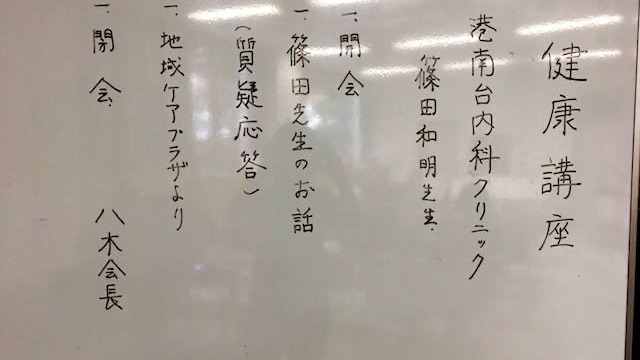 健康講座
港南台内科クリニック
篠田和明先生
一、開会
一、篠田先生のお話
(質疑応答)
一、地域ケアプラザより
一、閉会 八木会長